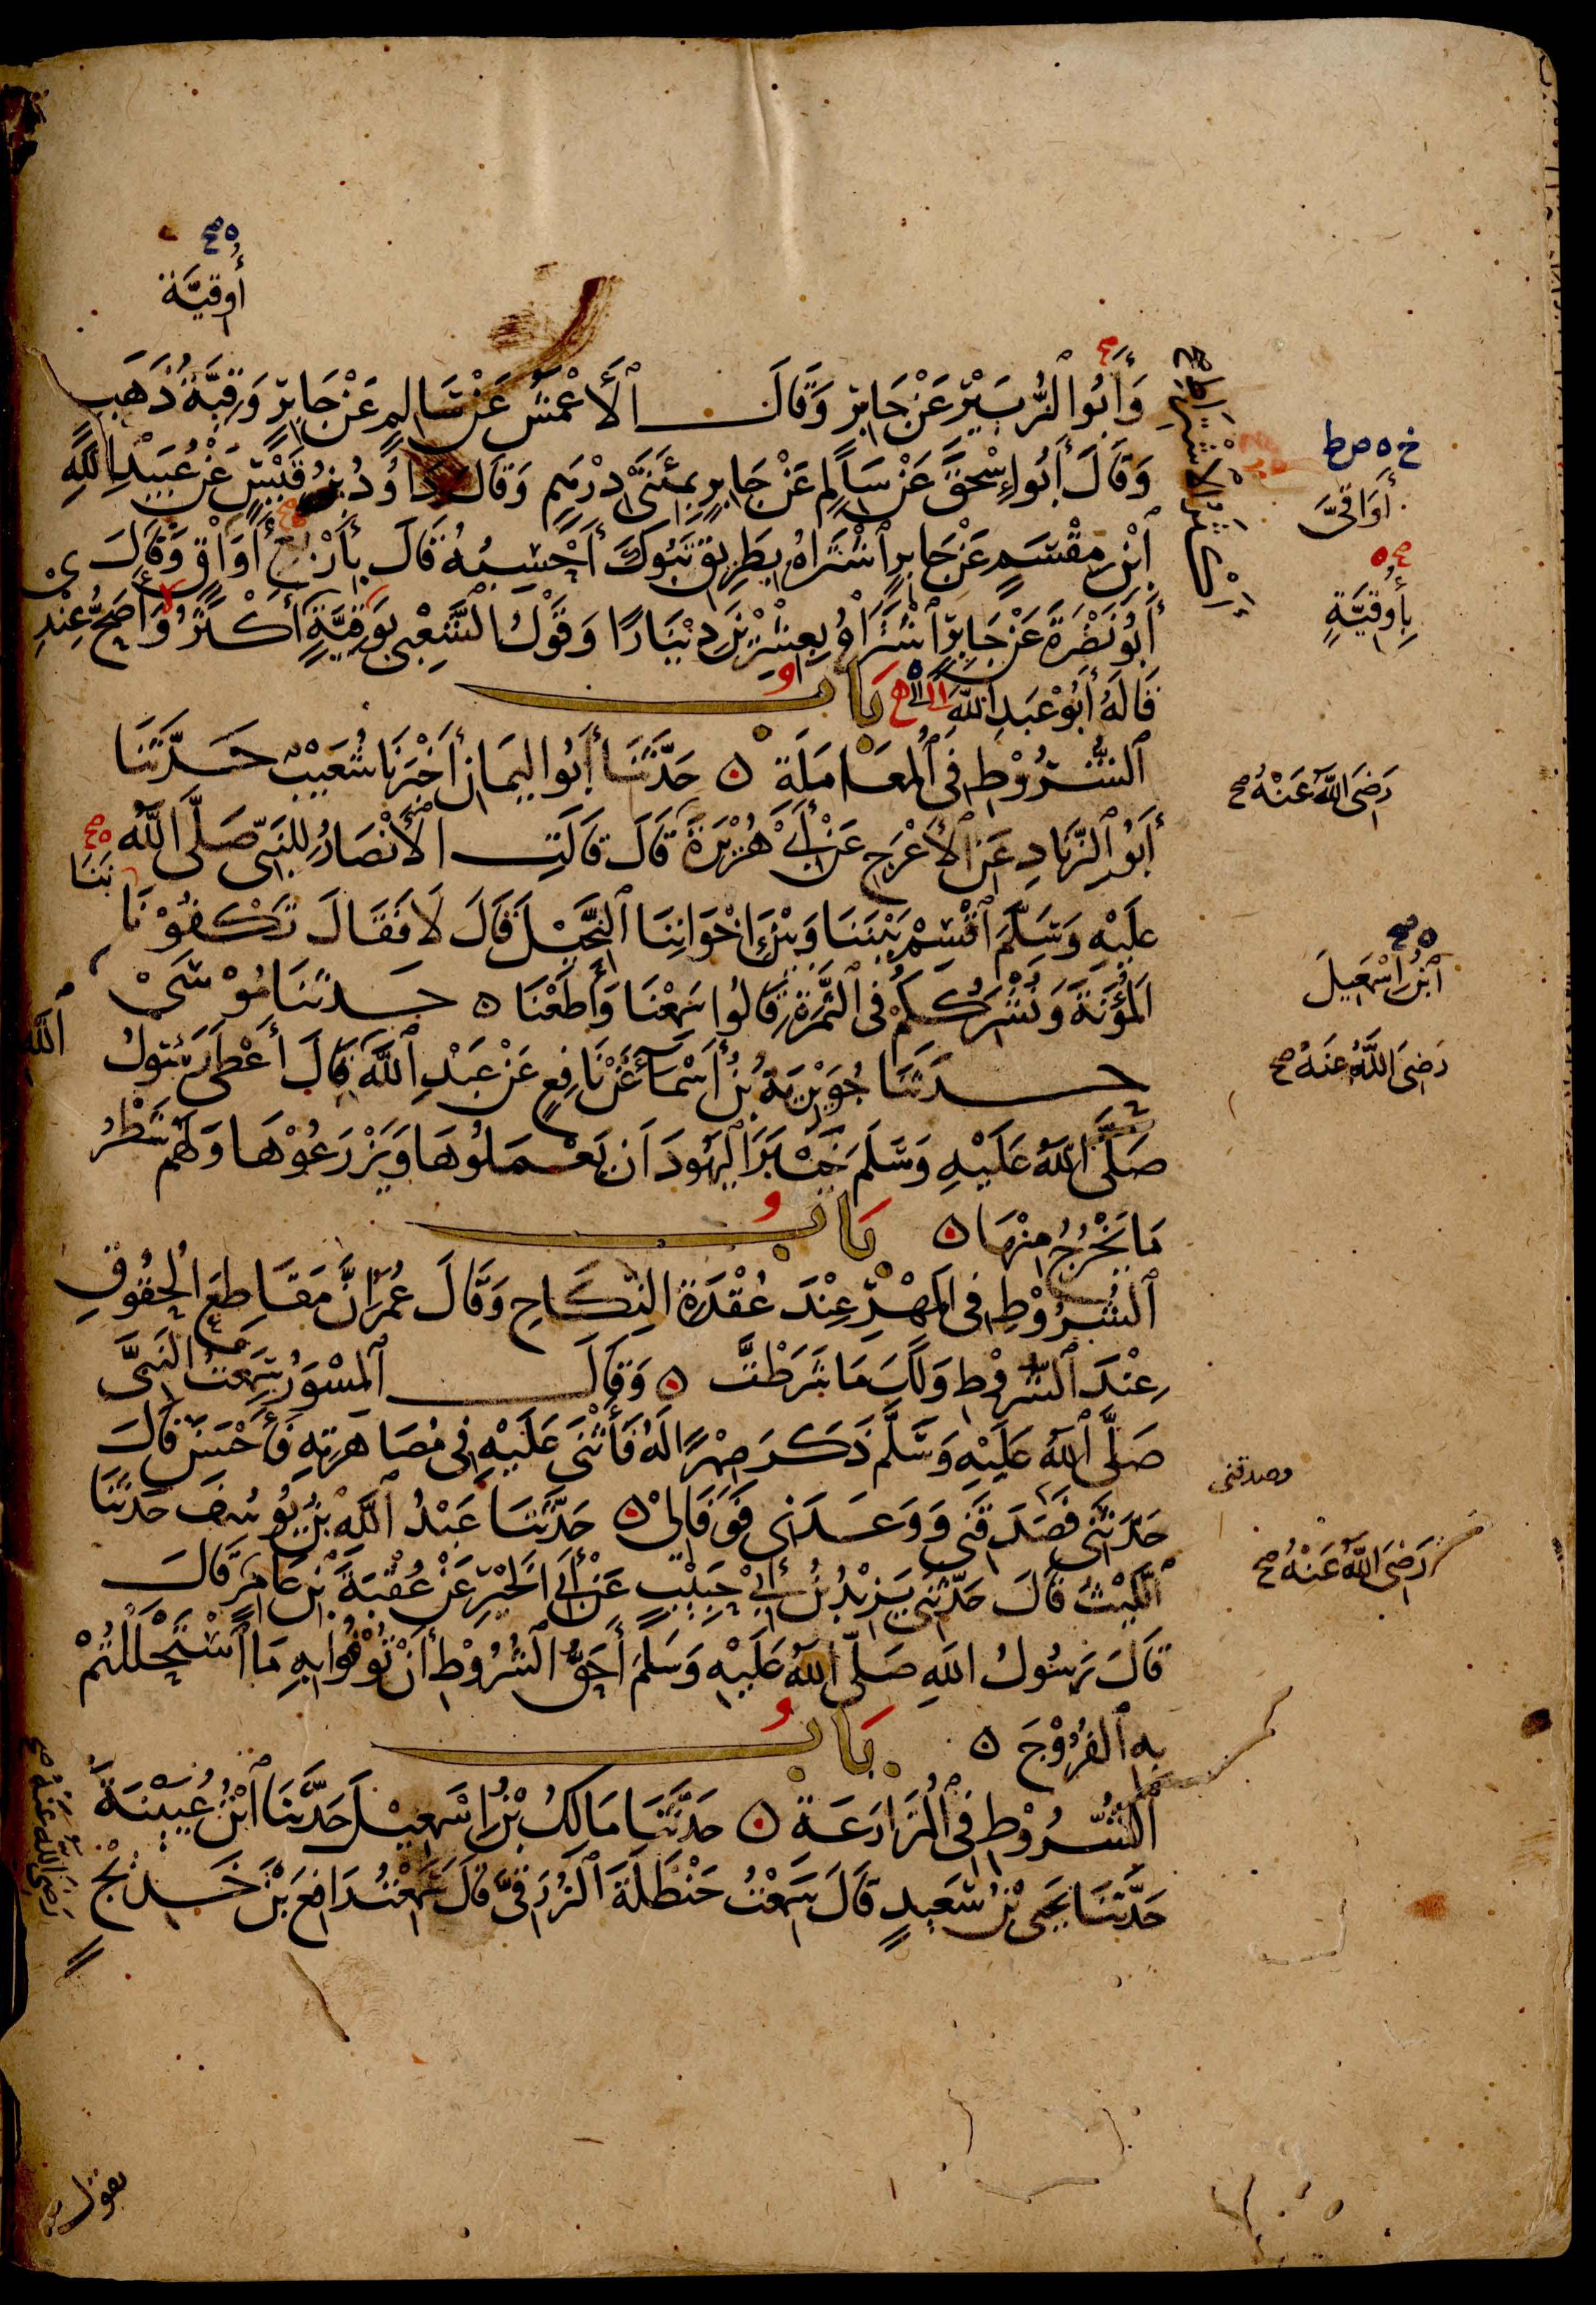 أُوقِيَّة
وَأَبُو الزُّبَيْرِ عَنْ جَابِرٍ وَقَالَ الْأَعْمَشُ عَنْ سَالِمٍ عَنْ جَابِرٍ وَقِيَّةُ ذَهَبٍ
وَقَالَ أَبُو إِسْحٰقَ عَنْ سَالِمٍ عَنْ جَابِرٍ بِمِئَتَيْ دِرْهَمٍ وَقَالَ دَاوُدُ بْنُ قَيْسٍ عَنْ عُبَيْدِ اللَّهِ
ابْنِ مِقْسَمٍ عَنْ جَابِرٍ اشْتَرَاهُ بِطَرِيقِ تَبُوكَ أَحْسِبُهُ قَالَ بِأَرْبَعِ أَوَاقٍ وَقَالَ
أَبُو نَضْرَةَ عَنْ جَابِرٍ اشْتَرَاهُ بِعِشْرِينَ دِينَارًا وَقَوْلُ الشَّعْبِي بِوَقِيَّةٍ أَكْثَرُ وَأَصَحُّ عِنْدِي
قَالَهُ أَبُو عَبْدِ اللَّهِ بَابُ
الشُّرُوطِ فِي الْمُعَامَلَةِ ٥ حَدَّثَنَا أَبُو الْيَمَانِ أَخْبَرَنَا شُعَيْبٌ حَدَّثَنَا
أَبُو الزِّنَادِ عَنِ الْأَعْرَجِ عَنْ أَبِي هُرَيْرَةَ قَالَ قَالَتِ الْأَنْصَارُ لِلنَّبِيِّ صَلَّى اللَّهُ
عَلَيْهِ وَسَلَّمَ اقْسِمْ بَيْنَنَا وَبَيْنَ إِخْوَانِنَا النَّخِيلَ قَالَ لَا فَقَالَ تَكْفُونَا
الْمَؤُنَةَ وَنُشْرِكُكُمْ فِي الثَّمَرَةِ قَالُوا سَمِعْنَا وَأَطَعْنَا ٥ حَدَّثَنَا مُوسَى
حَدَّثَنَا جُوَيْرِيَةُ بْنُ أَسْمَاءَ عَنْ نَافِعٍ عَنْ عَبْدِ اللَّهِ قَالَ أَعْطَى رَسُولُ
صَلَّى اللَّهُ عَلَيْهِ وَسَلَّمَ خَيْبَرَ الْيَهُودَ أَنْ يَعْمَلُوهَا وَيَزْرَعُوهَا وَلَهُمْ شَطْرُ
مَا يَخْرُجُ مِنْهَا ٥ بَابُ
الشُّرُوطِ فِي الْمَهْرِ عِنْدَ عُقْدَةِ النِّكَاحِ وَقَالَ عُمَرُ إِنَّ مَقَاطِعَ الْحُقُوقِ
عِنْدَ الشُّرُوطِ وَلَكَ مَا شَرَطْتَ ٥ وَقَالَ الْمِسْوَرُ سَمِعْتُ النَّبِيَّ
صَلَّى اللَّهُ عَلَيْهِ وَسَلَّمَ ذَكَرَ صِهْرًا لَهُ فَأَثْنَى عَلَيْهِ فِي مُصَاهَرَتِهِ فَأَحْسَنَ قَالَ
حَدَّثَنِي فَصَدَقَنِي وَوَعَدَنِي فَوَفَا لِي ٥ حَدَّثَنَا عَبْدُ اللَّهِ بْنُ يُوسُفَ حَدَّثَنَا
اللَّيْثُ قَالَ حَدَّثَنِي يَزِيدُ بْنُ أَبِي حَبِيبٍ عَنْ أَبِي الْخَيْرِ عَنْ عُقْبَةَ بْنِ عَامِرٍ قَالَ
قَالَ رَسُولُ اللَّهِ صَلَّى اللَّهُ عَلَيْهِ وَسَلَّمَ أَحَقُّ الشُّرُوطِ أَنْ تُوفُوا بِهِ مَا اسْتَحْلَلْتُمْ
بِهِ الْفُرُوجَ ٥ بَابُ
الشُّرُوطِ فِي الْمُزَارَعَةِ ٥ حَدَّثَنَا مَالِكُ بْنُ إِسْمَعِيلَ حَدَّثَنَا ابْنُ عُيَيْنَةَ
حَدَّثَنَا يَحْيَى بْنُ سَعِيدٍ قَالَ سَمِعْتُ حَنْظَلَةَ الزُّرَقِيَّ قَالَ سَمِعْتُ رَافِعَ بْنَ خَدِيجٍ
أَوَاقِيَّ
بِأُوقِيَّةٍ
رَضِيَ اللَّهُ عَنْهُ صح
بَيْنَنَا
ابْنُ إِسْمَعِيلَ
اللَّهِ
رَضِيَ اللَّهُ عَنْهُ صح
وصدقني
رَضِيَ اللَّهُ عَنْهُ صح
رَضِيَ اللَّهُ عَنْهُ صح
يقول